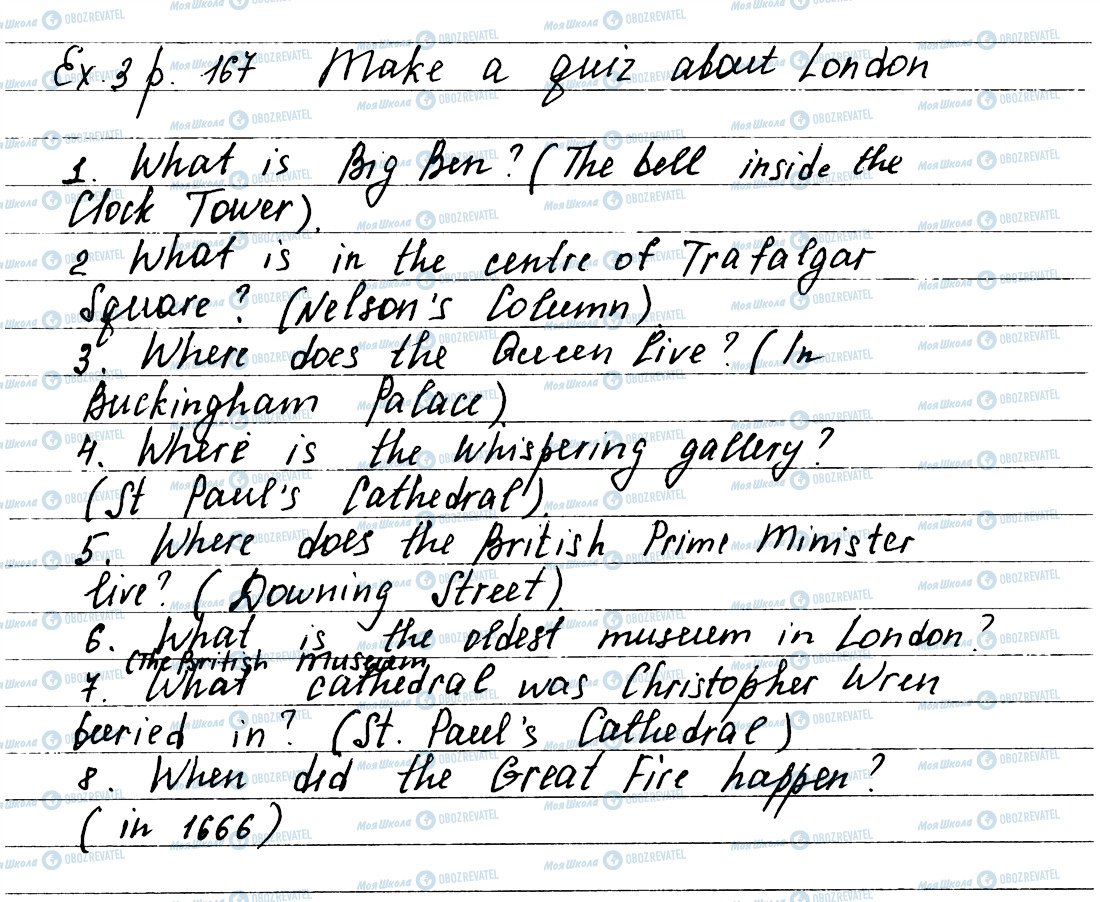 Ex. 3 p. 167 Make a quiz about London
1. What is Big Ben? (The bell inside the
Clock Tower).
2 What is in the centre of Trafalgar
Square? (Nelson's Column).
3. Where does the Queen live? (In
Buckingham Palace)
4. Where is the whispering gallery?
(St Paul's Cathedral).
5. Where does the British Prime Minister
live? (Downing Street).
6. What is the oldest museum in London?
(The British museum)
7. What cathedral was Christopher Wren
buried in? (St. Paul's Cathedral)
8. When did the Great Fire happen?
(in 1666)
МояШкола OBOZREVATEL